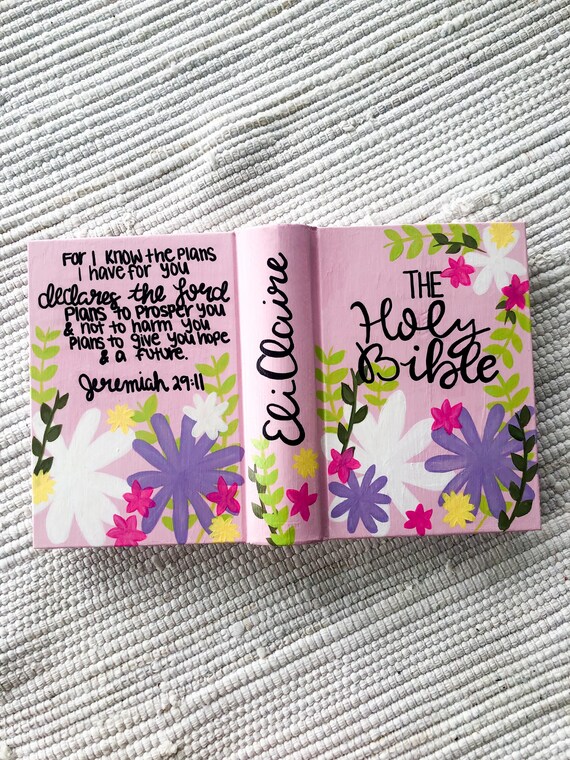 For I know the plans
I have for you
declares the Lord
plans to prosper you
& not to harm you
plans to give you hope
& a future.
Jeremiah 29:11
Eli Claire
THE
Holy
Bible